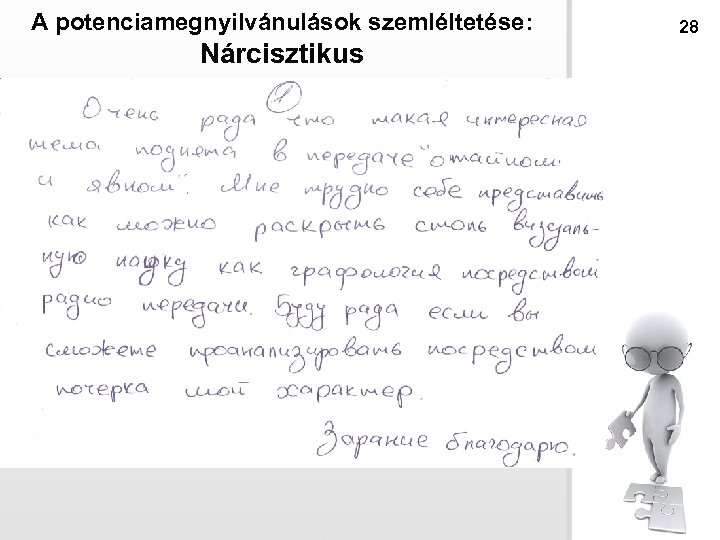 A potenciamegnyilvánulások szemléltetése:
Nárcisztikus
28
1
Очень рада что такая интересная
тема поднята в передаче "о тайном
и явном". Мне трудно себе представить
как можно раскрыть столь визуаль-
ную науку как графология посредством
радио передачи. Буду рада если вы
сможете проанализировать посредством
почерка мой характер.
Зарание благодарю.